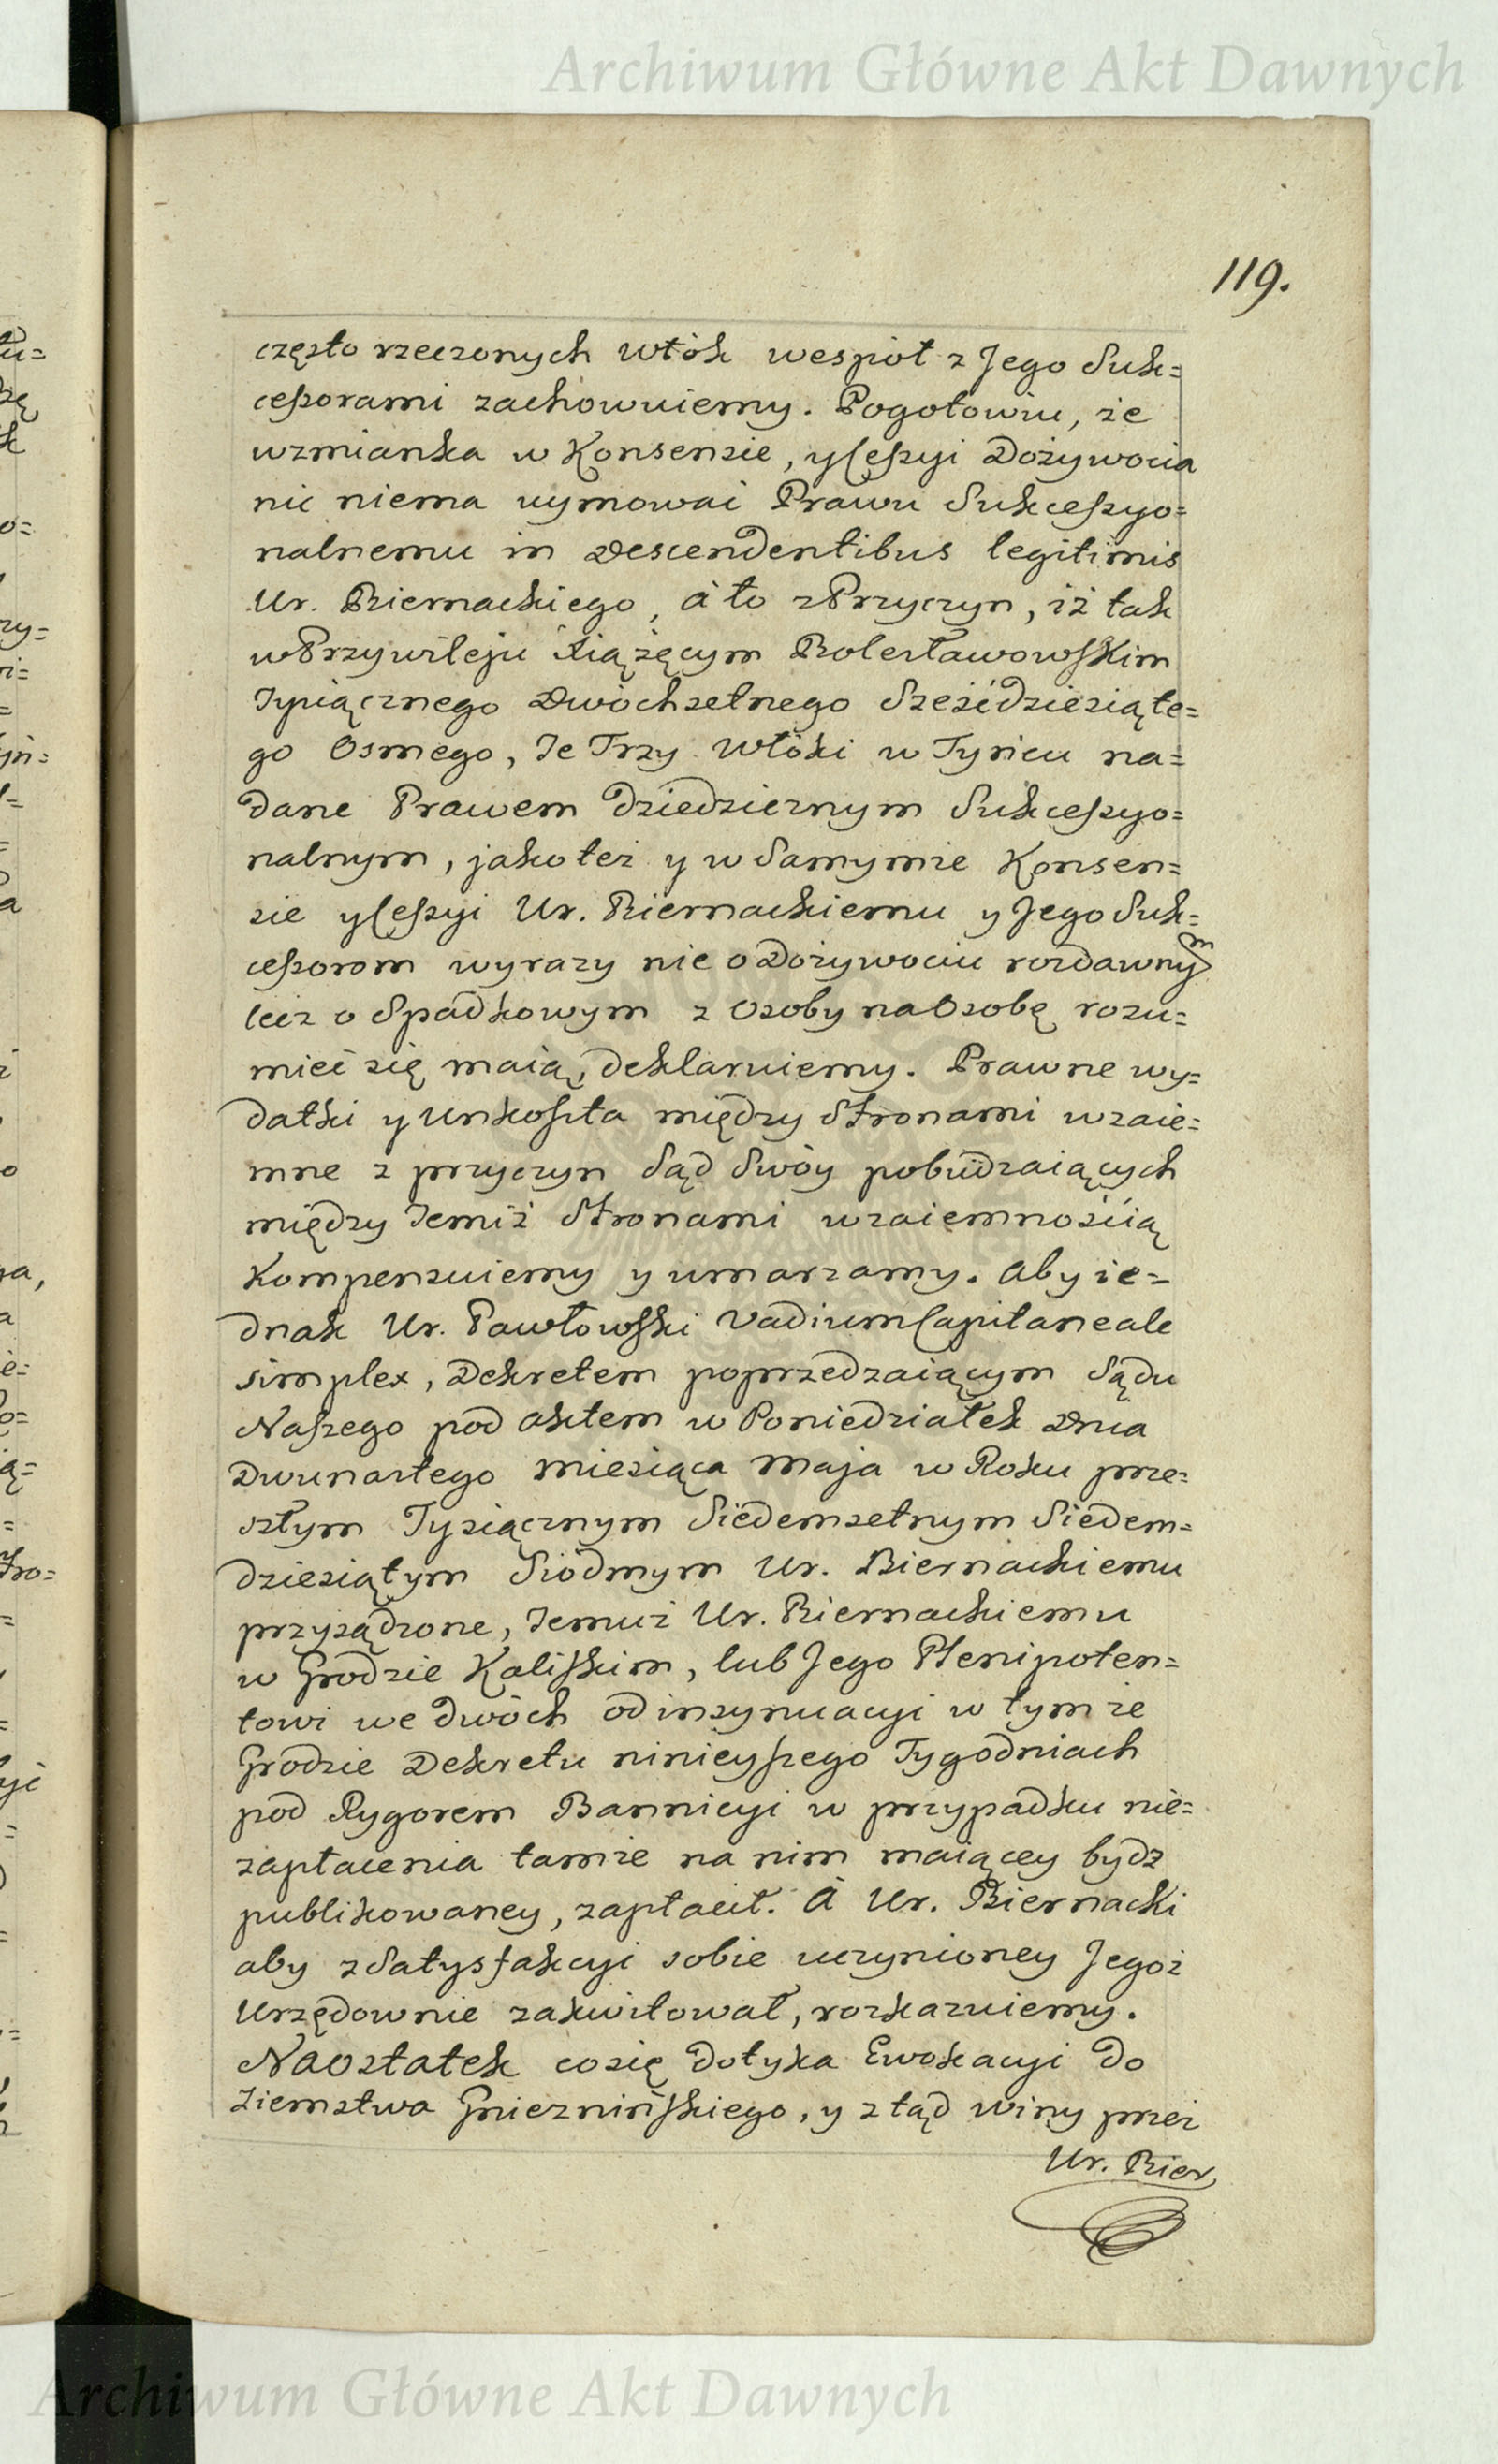 Archiwum Główne Akt Dawnych
119.
często rzeczonych Włók wespół z Jego Suk=
ceßorami zachowuiemy. Pogotowiu, że
wzmianka w Konsensie, y Ceßyi Dożywocia
nic niema uymować Prawu Sukceßyo=
nalnemu in Descendentibus legitimis
Ur. Biernackiego, á to z Przyczyn, iż tak
w Przywileju Xiążęcym Bolesławowskim
Tysiącznego Dwóchsetnego Sześćdziesiąte=
go Osmego, Te Trzy Włóki w Tyńcu na=
dane Prawem Dziedzicznym Sukceßyo=
nalnym, jako też y w Samymże Konsen=
sie y Ceßyi Ur. Biernackiemu y Jego Suk=
ceßorom wyrazy nie o Dożywociu rozdawnym
lecz o Spadkowym z Osoby na Osobę rozu=
mieć się maią, deklaruiemy. Prawne wy=
datki y Unkoszta między Stronami wzaie=
mne z przyczyn Sąd Swóy pobudzaiących
między Temiż Stronami wzaiemnością
Kompensuiemy y umarzamy. Aby ie=
dnak Ur. Pawłowski Vadium Capitaneale
simplex, Dekretem poprzedzaiącym Sądu
Naszego pod aktem w Poniedziałek Dnia
Dwunastego miesiąca Maja w Roku prze=
szłym Tysiącznym Siedemsetnym Siedem=
dziesiątym Siódmym Ur. Biernackiemu
przysądzone, Temuż Ur. Biernackiemu
w Grodzie Kaliskim, lub Jego Plenipoten=
towi we dwóch od insynuacyi w tymże
Grodzie Dekretu ninieyszego Tygodniach
pod Rygorem Bannicyi w przypadku nie=
zapłacenia tamże na nim maiącey bydz
publikowaney, zapłacił. A Ur. Biernacki
aby z Satysfakcyi sobie uczynioney Jegoż
Urzędownie zakwitował, rozkazuiemy.
Naostatek co się dotyka Ewokacyi do
Ziemstwa Gnieznińskiego, y ztąd winy przez
Ur. Bier
Archiwum Główne Akt Dawnych